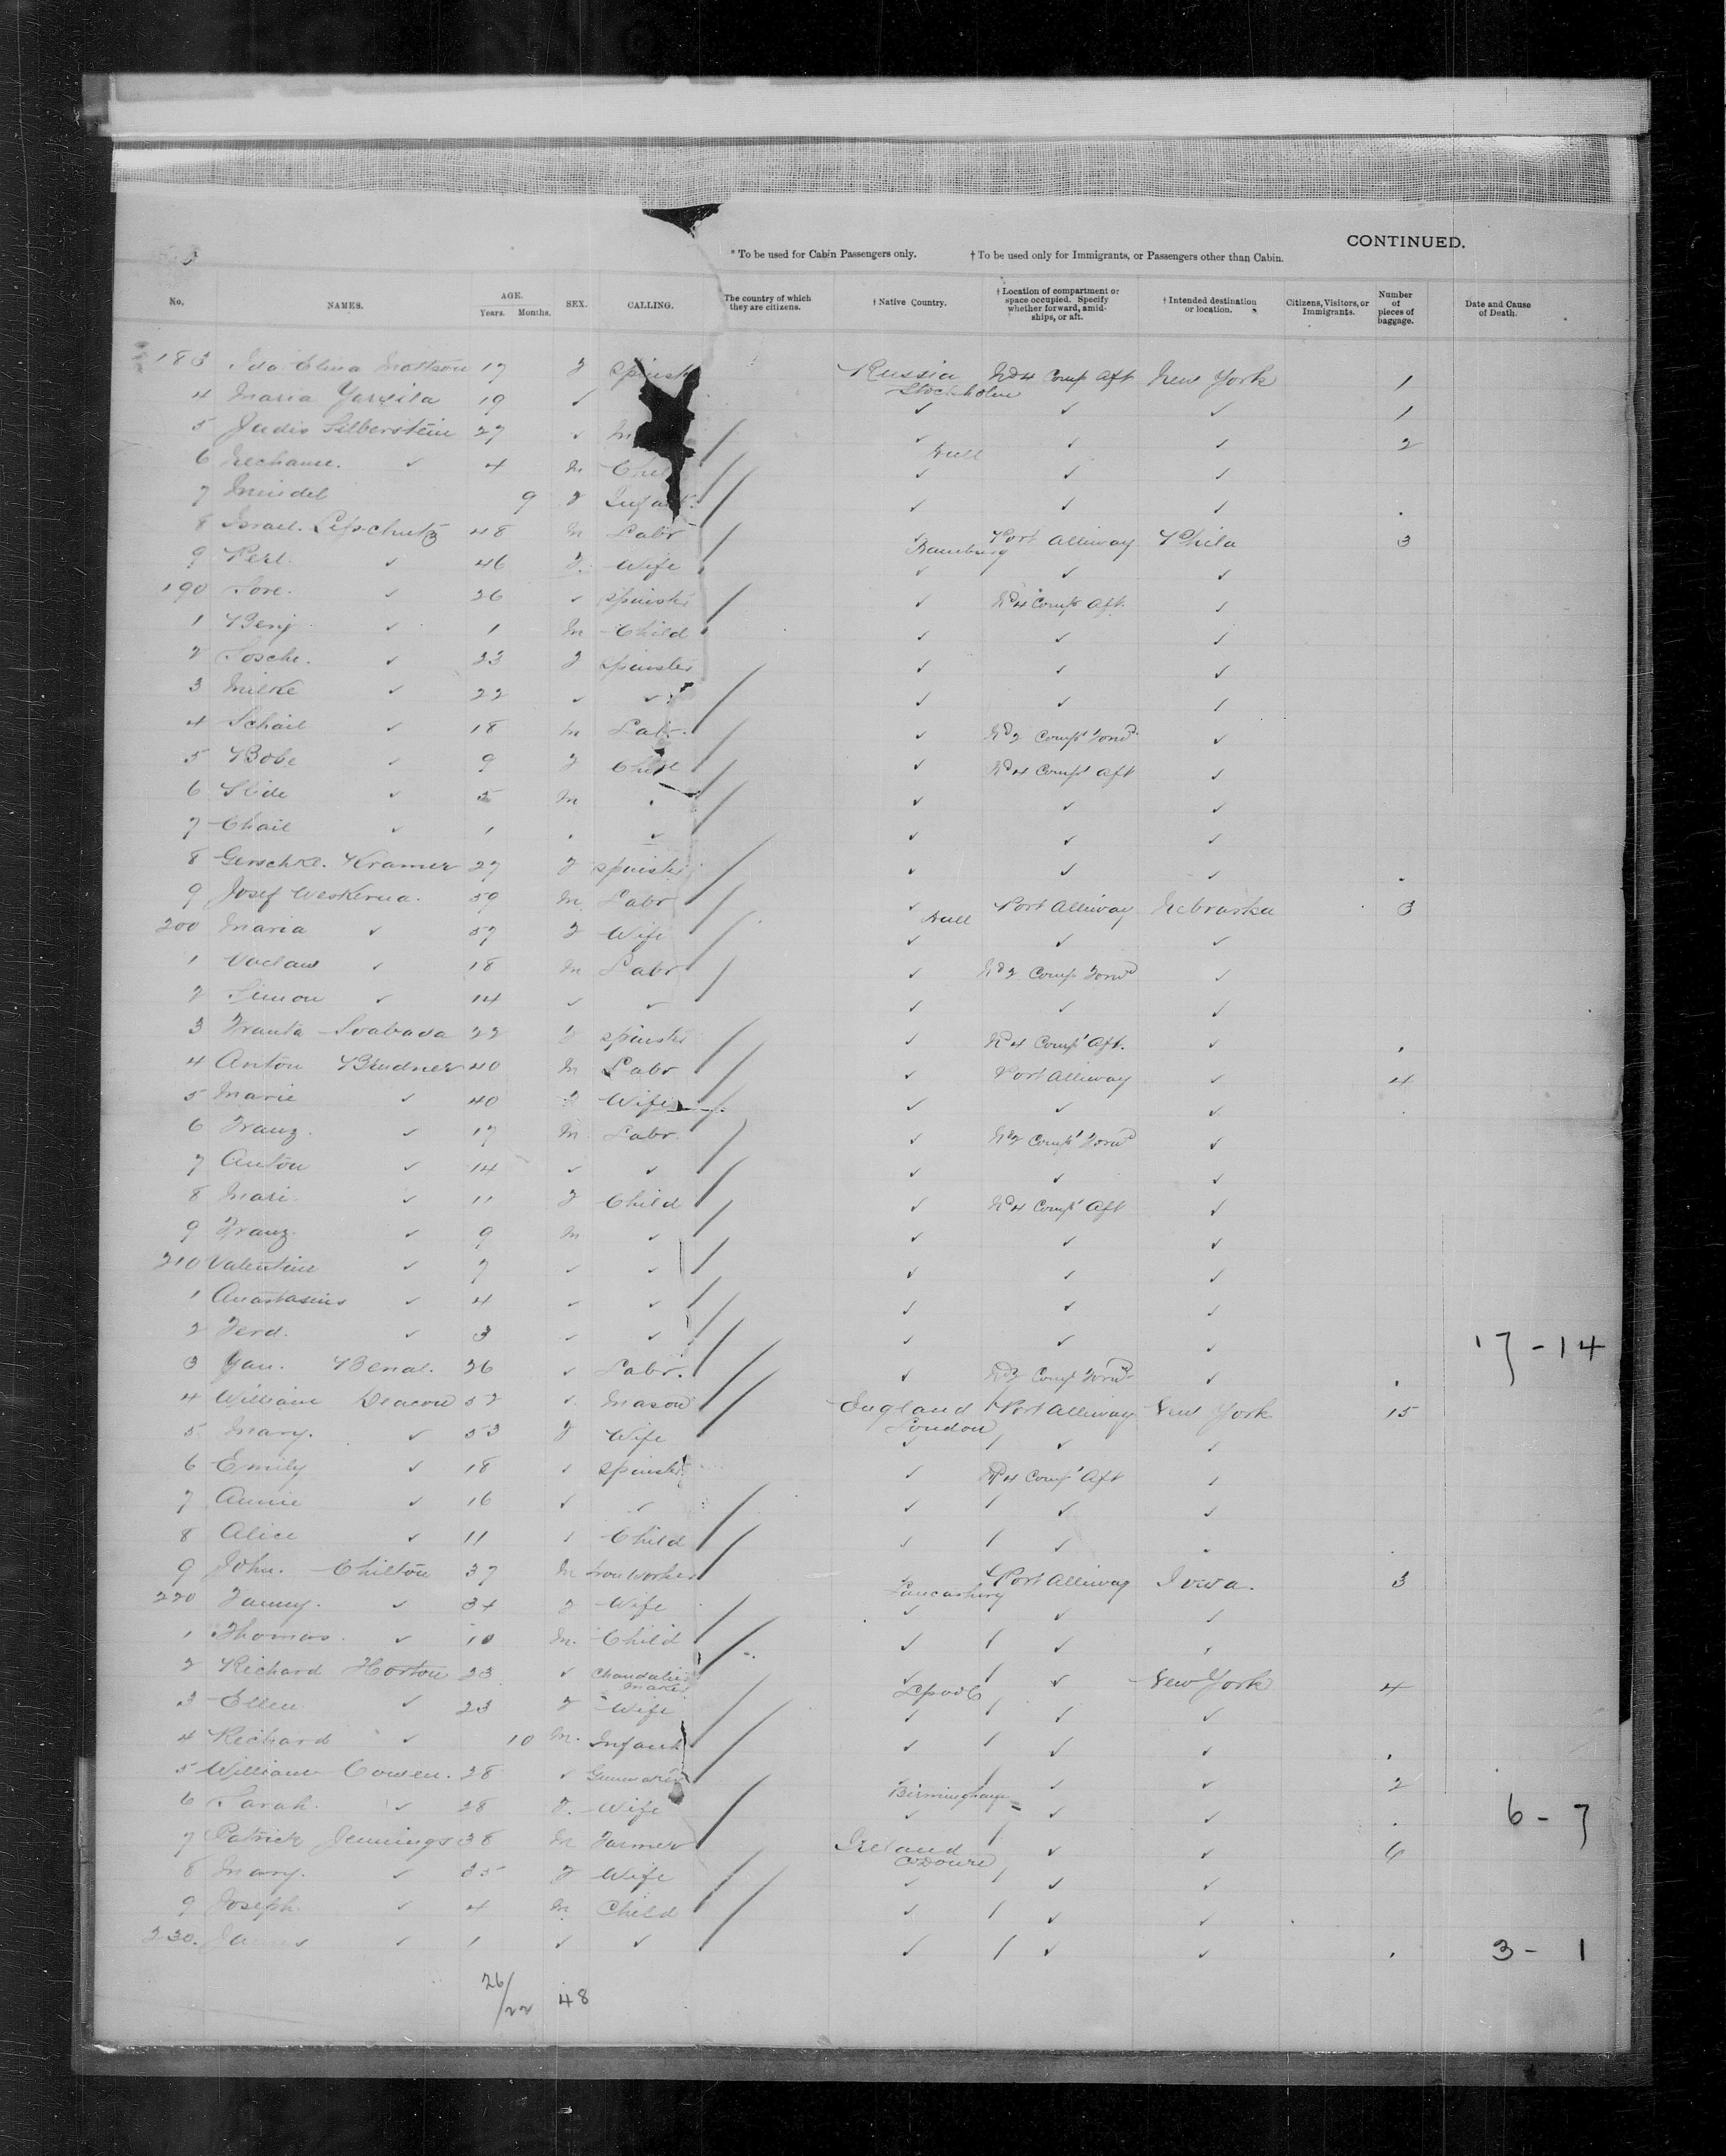 CONTINUED.
* To be used for Cabin Passengers only. † To be used only for Immigrants, or Passengers other than Cabin.
No. NAMES. AGE. Years. Months. SEX. CALLING. The country of which they are citizens. † Native Country. † Location of compartment or space occupied. Specify whether forward, amidships, or aft. † Intended destination or location. Citizens, Visitors, or Immigrants. Number of pieces of baggage. Date and Cause of Death.
183 Ida Elina Mattson 17 F Spinst Russia Stockholm No 4 Compt Aft New York 1
4 Maria 19 ✓ ✓ ✓ ✓ 1
5 Judis Silberstein 27 ✓ ✓ Hull ✓ ✓ 2
6 ✓ 4 M Chil ✓ ✓ ✓
7 Mindel 9 F Infant ✓ ✓ ✓
8 Israel Lipschutz 48 M Labr ✓ Hamburg Port Alliway Phila 3
9 Perl ✓ 46 F. Wife ✓ ✓ ✓
190 Sore. ✓ 26 ✓ Spinster ✓ No 4 Compt Aft. ✓
1 Benj ✓ 1 M Child ✓ ✓ ✓
2 Sosche. ✓ 23 F Spinster ✓ ✓ ✓
3 Milke ✓ 22 ✓ ✓ ✓ ✓ ✓
4 Schail ✓ 18 M Labr. ✓ No 2 Compt Forwd ✓
5 Bobe ✓ 9 F Child ✓ No 4 Compt Aft ✓
6 Slide ✓ 5 M ✓ ✓ ✓
7 Chail ✓ 1 ✓ ✓ ✓ ✓
8 Gerschke. Kramer 27 F Spinster ✓ ✓ ✓
9 Josef Weskerna. 59 M Labr ✓ Hull Port Alliway Nebraska 3
200 Maria ✓ 57 F Wife ✓ ✓ ✓
1 Vaclaw ✓ 18 M Labr ✓ No 2 Compt Forwd ✓
2 Simon ✓ 14 ✓ ✓ ✓ ✓ ✓
3 Franta Svabada 22 F Spinster ✓ No 4 Compt Aft. ✓
4 Anton Bindner 40 M Labr ✓ Port Alliway ✓ 4
5 Marie ✓ 40 F Wife ✓ ✓ ✓
6 Franz. ✓ 17 M Labr. ✓ No 2 Compt Forwd ✓
7 Anton ✓ 14 ✓ ✓ ✓ ✓ ✓
8 Mari ✓ 11 F Child ✓ No 4 Compt Aft ✓
9 Franz. ✓ 9 M ✓ ✓ ✓ ✓
210 Valentine ✓ 7 ✓ ✓ ✓ ✓ ✓
1 Anastasius ✓ 4 ✓ ✓ ✓ ✓ ✓
2 Ferd. ✓ 3 ✓ ✓ ✓ ✓ ✓ 17-14
3 Jan. Benal. 26 ✓ Labr. ✓ No 2 Compt Forwd ✓
4 William Deacon 52 ✓ Mason England London Port Alliway New York 15
5 Mary. ✓ 53 F Wife ✓ ✓ ✓
6 Emily ✓ 18 ✓ Spinster ✓ No 4 Compt Aft ✓
7 Annie ✓ 16 ✓ ✓ ✓ ✓ ✓
8 Alice ✓ 11 ✓ Child ✓ ✓
9 John. Chilton 37 M Iron Worker Port Alliway Iowa. 3
220 Fanny. ✓ 34 F Wife ✓ ✓ ✓
1 Thomas ✓ 10 M. Child ✓ ✓
2 Richard Horton 23 ✓ Chandalier maker ✓ Lpool ✓ New York 4
3 Ellen ✓ 23 F Wife ✓ ✓ ✓
4 Richard ✓ 10 M. Infant ✓ ✓ ✓
5 William Cowen. 28 ✓ Birmingham ✓ ✓ 2
6 Sarah. ✓ 28 F. Wife ✓ ✓ ✓ 6-7
7 Patrick Jennings 38 M Farmer Ireland ✓ ✓ 6
8 Mary. ✓ 35 F Wife ✓ ✓ ✓
9 Joseph. ✓ 4 M Child ✓ ✓ ✓
230. James ✓ 1 ✓ ✓ ✓ ✓ ✓ 3-1
26/22 48